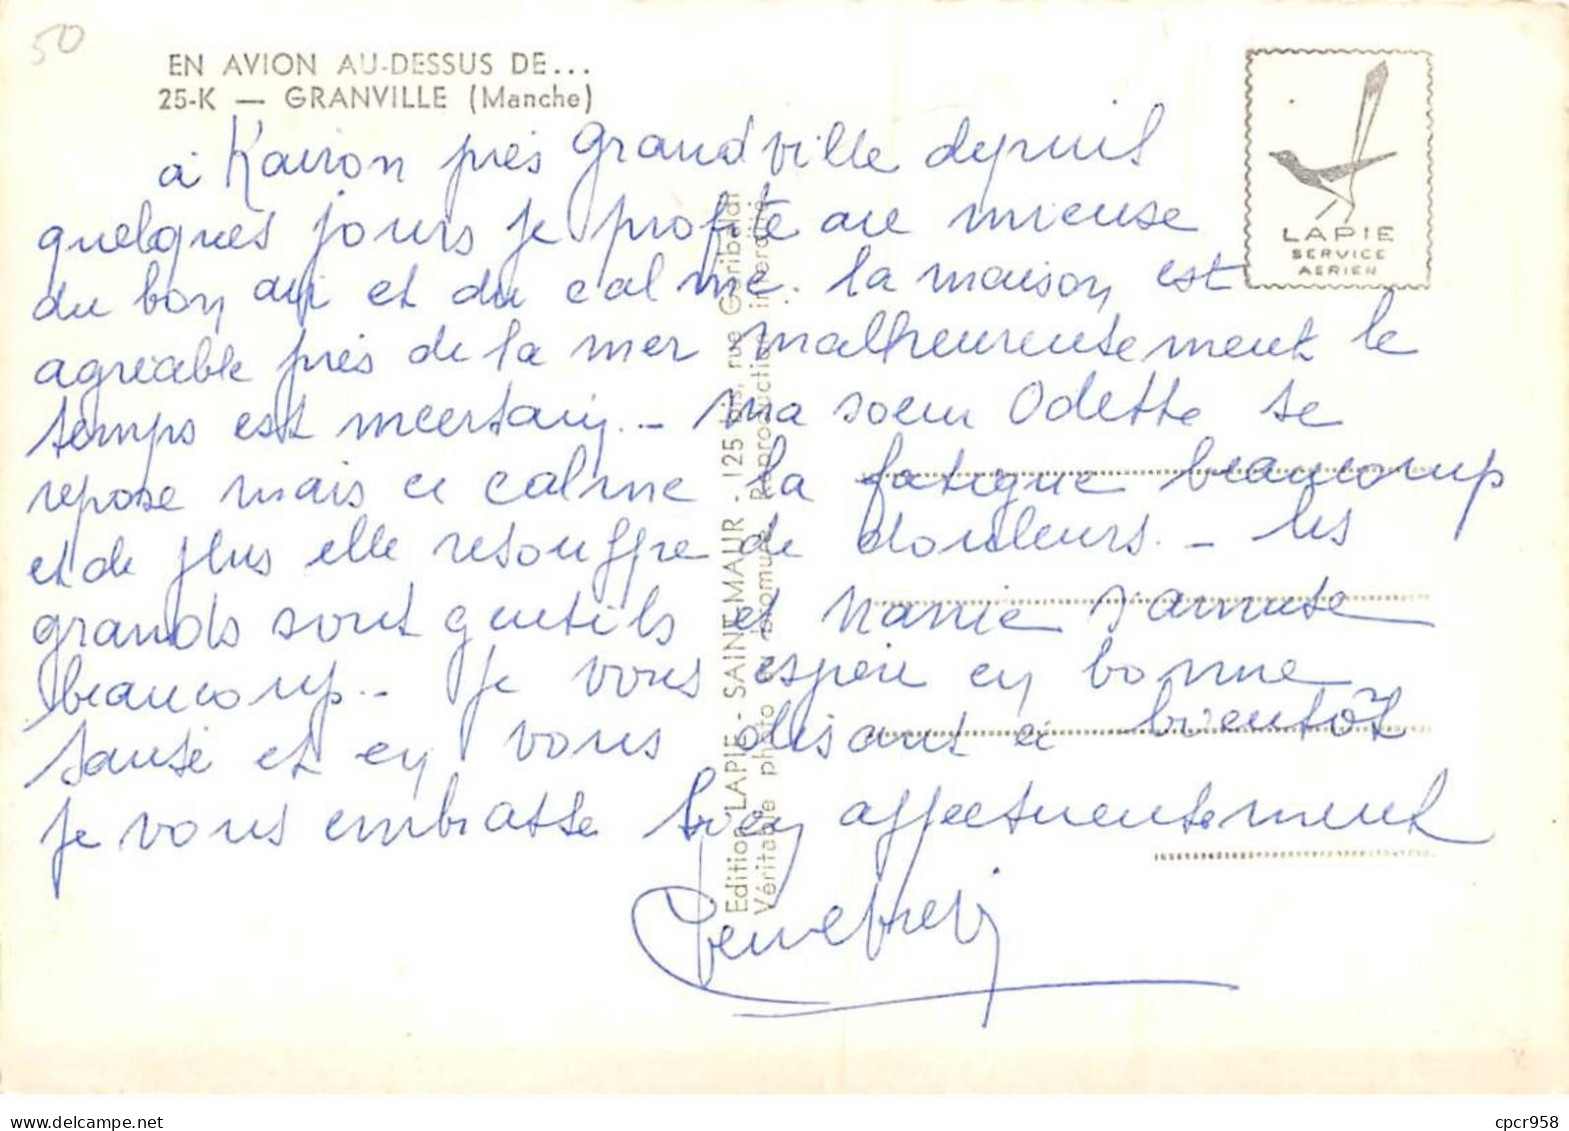 50
EN AVION AU-DESSUS DE...
25-K — GRANVILLE (Manche)
à Kairon près Grandville depuis
quelques jours je profite au mieuse
du bon air et du calme. la maison est
agréable près de la mer malheureusement le
temps est incertain - ma soeur Odette se
repose mais ce calme la fatigue beaucoup
et de plus elle resouffre de douleurs - les
grands sont gentils et Nanie s'amuse
beaucoup - Je vous espère en bonne
santé et en vous disant à bientôt
Je vous embrasse bien affectueusement
LAPIE
SERVICE
AERIEN
Edition LAPIE - SAINT-MAUR - 125 bis, rue Garibaldi
Véritable photo au bromure Reproduction interdite
delcampe.net
cpcr958